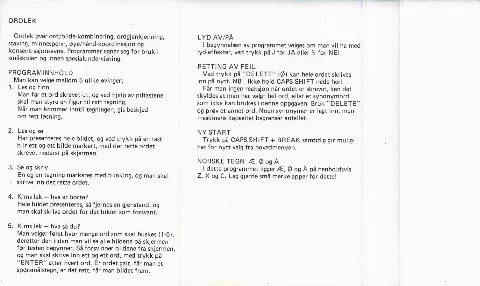 ORDLEK
Ordlek øver ord/bilde-kombinering, ordgjenkjenning,
staving, minnespenn, øye/hånd-koordinasjon og
konsentrasjonsevne. Programmet egner seg for bruk i
småskolen og innen spesialundervisning.
PROGRAMINNHOLD
Man kan velge mellom 5 ulike øvinger:
1. Les og finn
Man får et ord skrevet ut, og ved hjelp av piltastene
skal man styre en figur til rett tegning.
Når man kommer inntil tegningen, gis beskjed
om rett løsning.
2. Les og se
Her presenteres hele bildet, og ved trykk på en tast
blir ett og ett bilde markert, med det rette ordet
skrevet nederst på skjermen.
3. Se og skriv
En og en tegning markeres med blinking, og man skal
skrive inn det rette ordet.
4. Kims lek – hva er borte?
Hele bildet presenteres, så fjernes en gjenstand, og
man skal skrive ordet for det bildet som forsvant.
5. Kims lek – hva så du?
Man velger først hvor mange ord som skal huskes (1-6),
deretter den tiden man vil se alle bildene på skjermen
før testen begynner. Så forsvinner bildene fra skjermen,
og man skal skrive inn ett og ett ord, med trykk på
"ENTER" etter hvert ord. Er ordet galt, får man et
spørsmålstegn, er det rett, får man bildet fram.
LYD AV/PÅ
I begynnelsen av programmet velges om man vil ha med
lydeffekter, ved trykk på J for JA eller N for NEI.
RETTING AV FEIL
Ved trykk på "DELETE" (Ø) kan hele ordet skrives
inn på nytt. NB! Ikke hold CAPS SHIFT nede her!
Får man ingen reaksjon når ordet er skrevet, kan det
skyldes at man har valgt feil ord, eller et synonymord
som ikke kan brukes i denne oppgaven. Bruk "DELETE"
og prøv et annet ord. Noen synonymer er lagt inn, men
maskinens kapasitet begrenser antallet.
NY START
Trykk på CAPS SHIFT + BREAK samtidig gir mulig-
het for nytt valg fra hovedmenyen.
NORSKE TEGN: Æ, Ø og Å
I dette programmet ligger Æ, Ø og Å på henholdsvis
Z, X og C. Lag gjerne små merkelapper for dette!